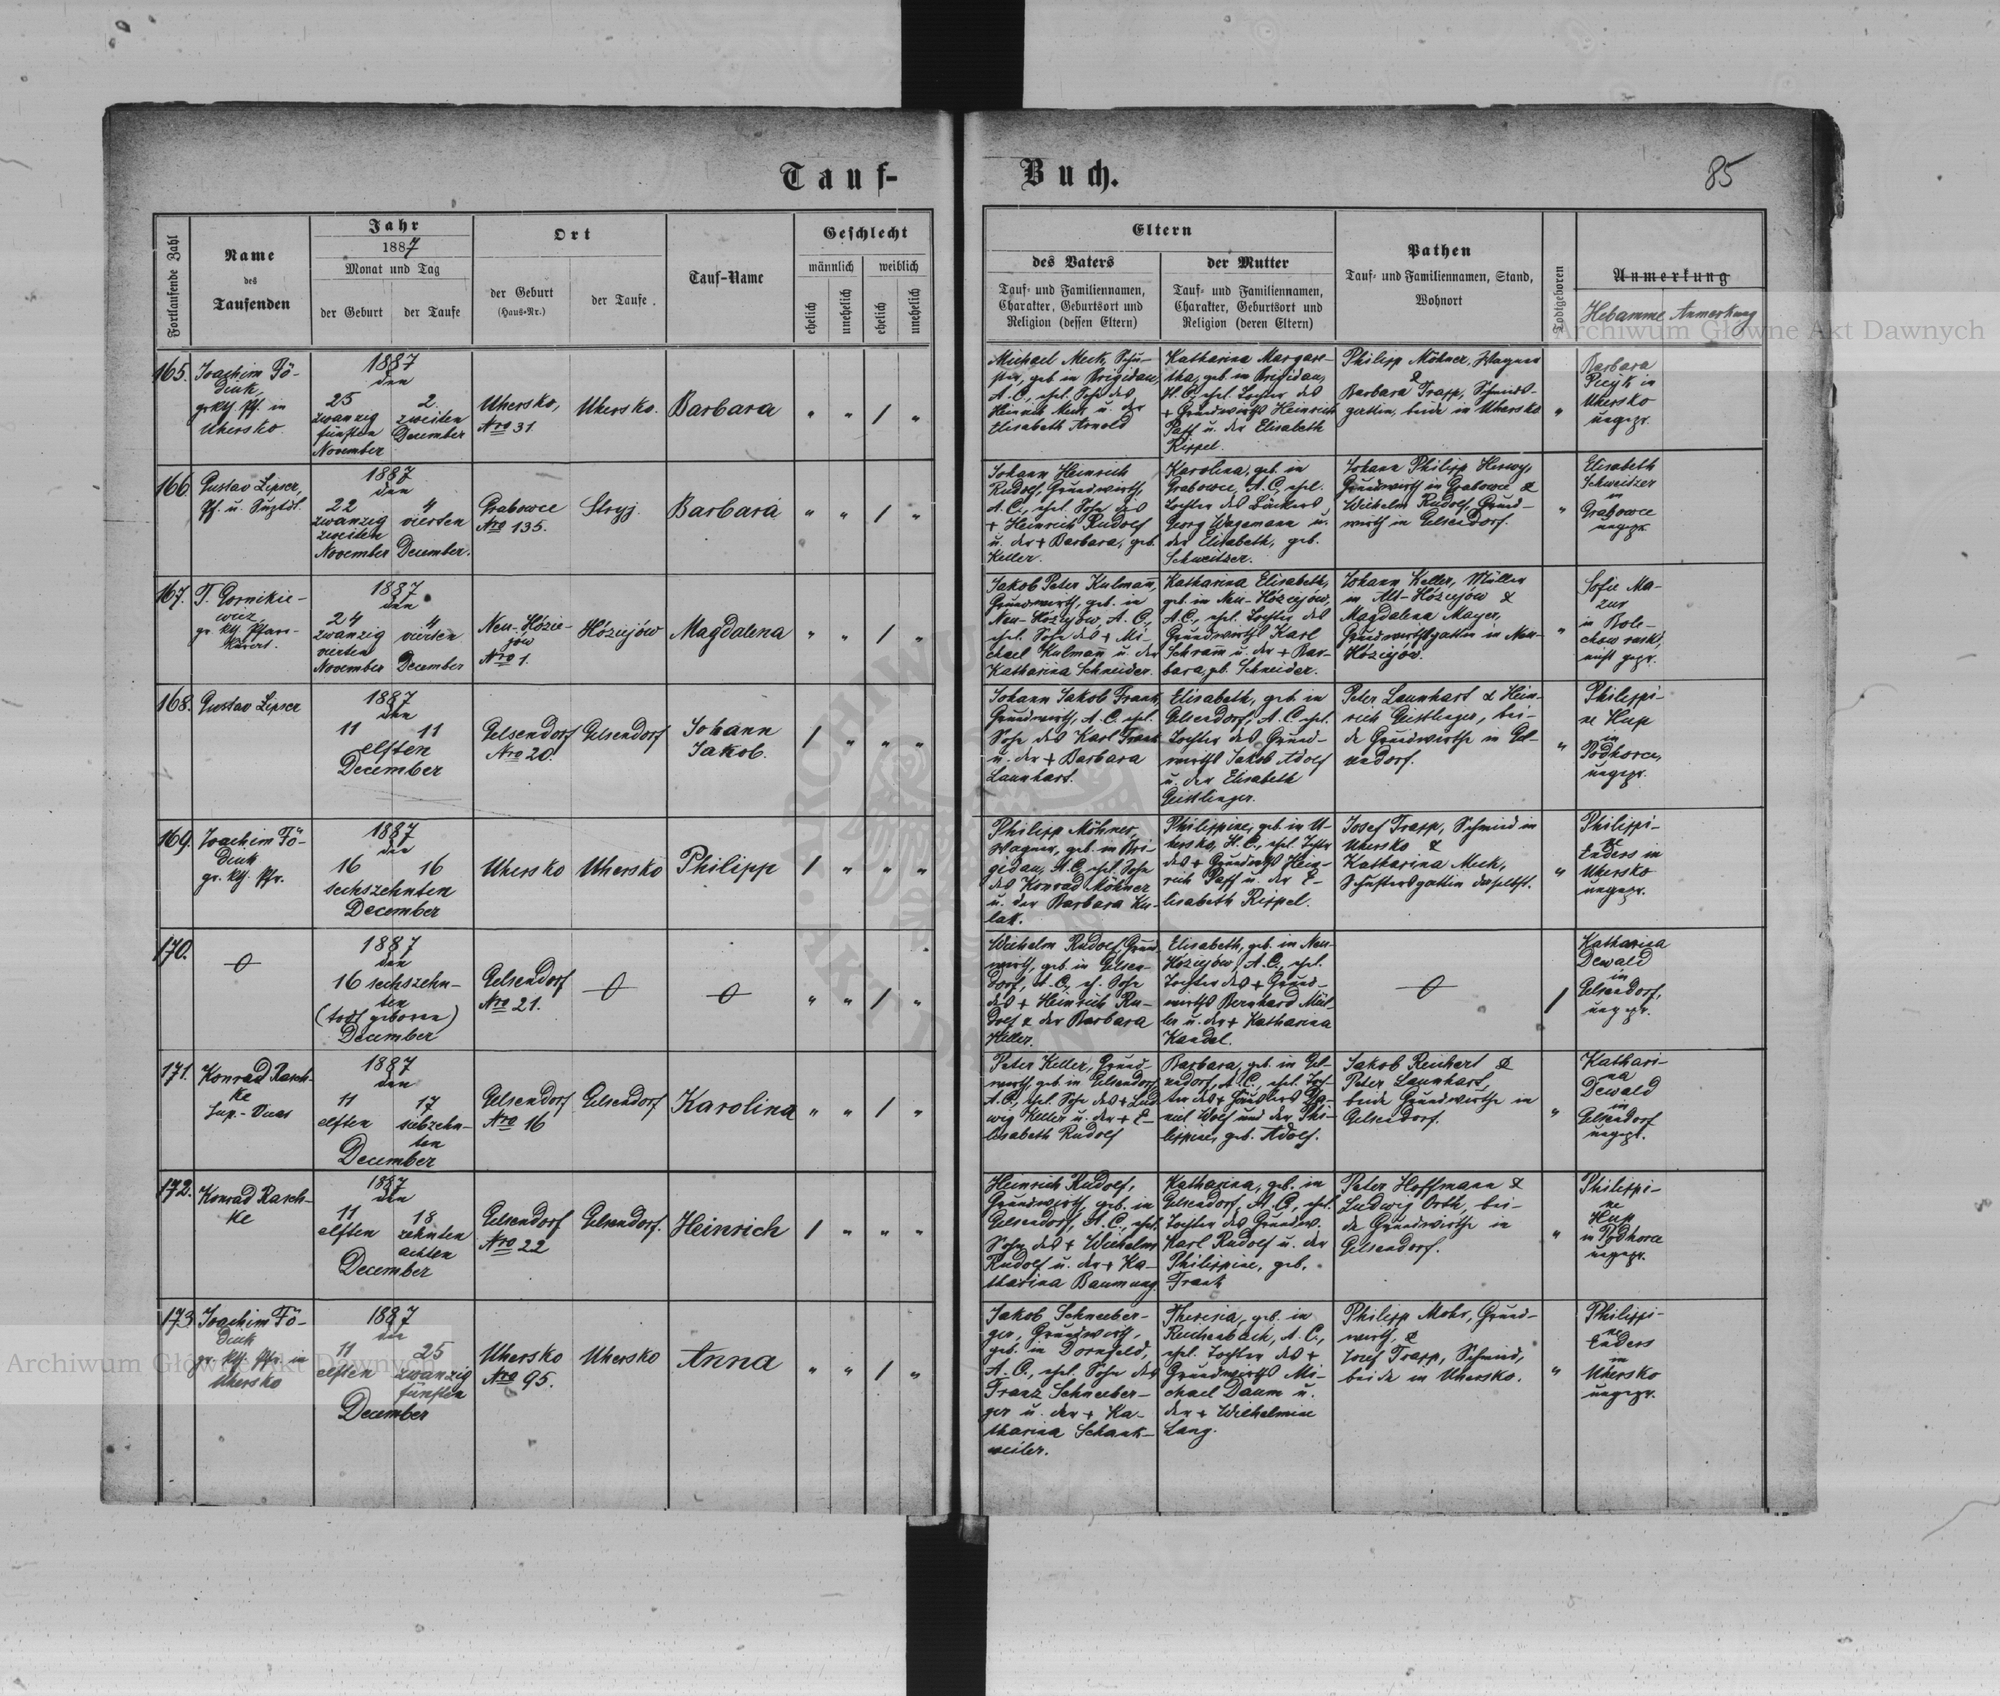 Tauf-
Buch.
85
Fortlaufende Zahl
Name
des
Taufenden
Jahr
1887
Monat und Tag
der Geburt
der Taufe
Ort
der Geburt
(Haus-Nr.)
der Taufe.
Tauf-Name
Geschlecht
männlich
weiblich
ehelich
unehelich
ehelich
unehelich
Eltern
des Vaters
Tauf- und Familiennamen,
Charakter, Geburtsort und
Religion (dessen Eltern)
der Mutter
Tauf- und Familiennamen,
Charakter, Geburtsort und
Religion (deren Eltern)
Pathen
Tauf- und Familiennamen, Stand,
Wohnort
Todtgeboren
Anmerkung
Hebamme Anmerkung
Archiwum Główne Akt Dawnych
165.
Joachim Fö-
diuk,
gr kth Pf. in
Uhersko.
1887
den
25
zwanzig
fünften
November
2.
zweiten
December
Uhersko,
Nro 31
Uhersko.
Barbara
" " / "
Michael Meck, Schu-
ster, geb. in Brigidau,
A. C., ehel. Sohn des
Heinrich Meck u. der
Elisabeth Arnold
Katharina Margare-
tha, geb. in Brigidau,
H. C., ehel. Tochter des
+ Grundwirths Heinrich
Paff u. der Elisabeth
Rippel.
Philipp Möhner, Wagner
&
Barbara Trapp, Schmids-
gattin, beide in Uhersko
"
Barbara
in
Uhersko
ungepr.
166.
Gustav Lipser,
Pf. u.
1887
den
22
zwanzig
zweiten
November
4
vierten
December.
Grabowce
Nro 135.
Stryj.
Barbara
" " / "
Johann Heinrich
Rudolf, Grundwirth,
A. C., ehel. Sohn des
+ Heinrich Rudolf
u. der + Barbara, geb.
Keller.
Karolina, geb. in
Grabowce, A. C., ehel.
Tochter des Bäckers
Georg Wagemann u.
der Elisabeth, geb.
Schweitzer.
Johann Philipp Herwy,
Grundwirth in Grabowce &
Wilhelm Rudolf, Grund-
wirth in Gelsendorf.
"
Elisabeth
Schweitzer
in
Grabowce
ungepr.
167.
T. Gornikie-
wicz,
gr. kth Pfarr-
1887
den
24
zwanzig
vierten
November
4
vierten
December
Neu-Hózie-
jów
Nro 1.
Hóziejów
Magdalena
" " / "
Jakob Peter Kulmann,
Grundwirth, geb. in
Neu-Hóziejów, A. C.,
ehel. Sohn des + Mi-
chael Kulmann u. der
Katharina Schneider.
Katharina Elisabeth,
geb. in Neu-Hóziejów,
A. C., ehel. Tochter des
Grundwirths Karl
Schramm u. der + Bar-
bara, geb. Schneider.
Johann Keller, Müller
in Alt-Hóziejów &
Magdalena Mayer,
Grundwirthsgattin in Neu-
Hóziejów.
"
Sofie Ma-
zur
in Bole-
chow ruski,
nicht gepr.
168.
Gustav Lipser
1887
den
11 11
elften
December
Gelsendorf
Nro 20.
Gelsendorf
Johann
Jakob.
/ " " "
Johann Jakob Frank,
Grundwirth, A. C. ehel.
Sohn des Karl Frank
u. der + Barbara
Launhart.
Elisabeth, geb in
Gelsendorf, A. C. ehel.
Tochter des Grund-
wirths Jakob Adolf
u. der Elisabeth
Geistlinger.
Peter Launhart & Hein-
rich Geistlinger, bei-
de Grundwirthe in Gel-
nedorf.
"
Philippi-
ne Hup
in
Podhorce,
ungepr.
169.
Joachim Fö-
diuk
gr. kth. Pfr.
1887
den
16 16
sechszehnten
December
Uhersko
Uhersko
Philipp
/ " " "
Philipp Möhner,
Wagner, geb. in Bri-
gidau, A. C., ehel. Sohn
des Konrad Möhner
u. der Barbara Ku-
lak.
Philippine, geb. in U-
hersko, H. C., ehel. Tochter
des + Grundwirths Hein-
rich Paff u. der E-
lisabeth Rippel.
Josef Trapp, Schmied in
Uhersko &
Katharina Meck,
Schustersgattin daselbst.
"
Philippi-
ne
Enders in
Uhersko
ungepr.
170.
1887
den
16 sechszehn-
ten
(todt geboren)
December
Gelsendorf
Nro 21.
" " / "
Wilhelm Rudolf, Grund-
wirth, geb. in Gelsen-
dorf, A. C., eh. Sohn
des + Heinrich Ru-
dolf & der Barbara
Keller.
Elisabeth, geb. in Neu-
Hóziejów, A. C., ehel.
Tochter des + Grund-
wirths Bernhard Mül-
ler u. der + Katharina
Kandel.
/
Katharina
Dewald
in
Gelsendorf,
ungepr.
171.
Konrad Rasch-
ke
Sup.-Vicar
1887
den
11
elften
17
siebzehn-
ten
December
Gelsendorf
Nro 16
Gelsendorf
Karolina
" " / "
Peter Keller, Grund-
wirth, geb. in Gelsendorf,
A. C., ehel. Sohn des + Lud-
wig Keller u. der + E-
lisabeth Rudolf
Barbara, geb. in Gel-
nedorf, A. C., ehel. Toch-
ter des + Häuslers Da-
niel Wolf und der Phi-
lippine, geb. Adolf.
Jakob Reichert &
Peter Launhart,
beide Grundwirthe in
Gelsendorf.
"
Kathari-
na
Dewald
in
Gelsendorf
ungepr.
172.
Konrad Rasch-
ke
1887
den
11
elften
18
zehnten
achten
December
Gelsendorf
Nro 22
Gelsendorf.
Heinrich
/ " " "
Heinrich Rudolf,
Grundwirth, geb. in
Gelsendorf, A. C., ehel.
Sohn des + Wilhelm
Rudolf u. der + Ka-
tharina Baumung.
Katharina, geb. in
Gelsendorf, A. C., ehel.
Tochter des Grundw.
Karl Rudolf u. der
Philippine, geb.
Frank
Peter Hoffmann &
Ludwig Orth, bei-
de Grundwirthe in
Gelsendorf.
"
Philippi-
ne
Hup
in Podhorce
ungepr.
173.
Joachim Fö-
diuk
gr. kth. Pfr. in
Uhersko
1887
den
11
elften
25
zwanzig
fünften
December
Uhersko
Nro 95.
Uhersko
Anna
" " / "
Jakob Schneeber-
ger, Grundwirth,
geb. in Dornfeld,
A. C., ehel. Sohn des
Franz Schneeber-
ger u. der + Ka-
tharina Schank-
weiler.
Theresia, geb. in
Reichenbach, A. C.,
ehel. Tochter des +
Grundwirths Mi-
chael Daum u.
der + Wilhelmine
Lang.
Philipp Mohr, Grund-
wirth, &
Josef Trapp, Schmied,
beide in Uhersko.
"
Philippi-
ne
Enders
in
Uhersko
ungepr.
Archiwum Główne Akt Dawnych
ARCHIWUM
AKT DAWNYCH